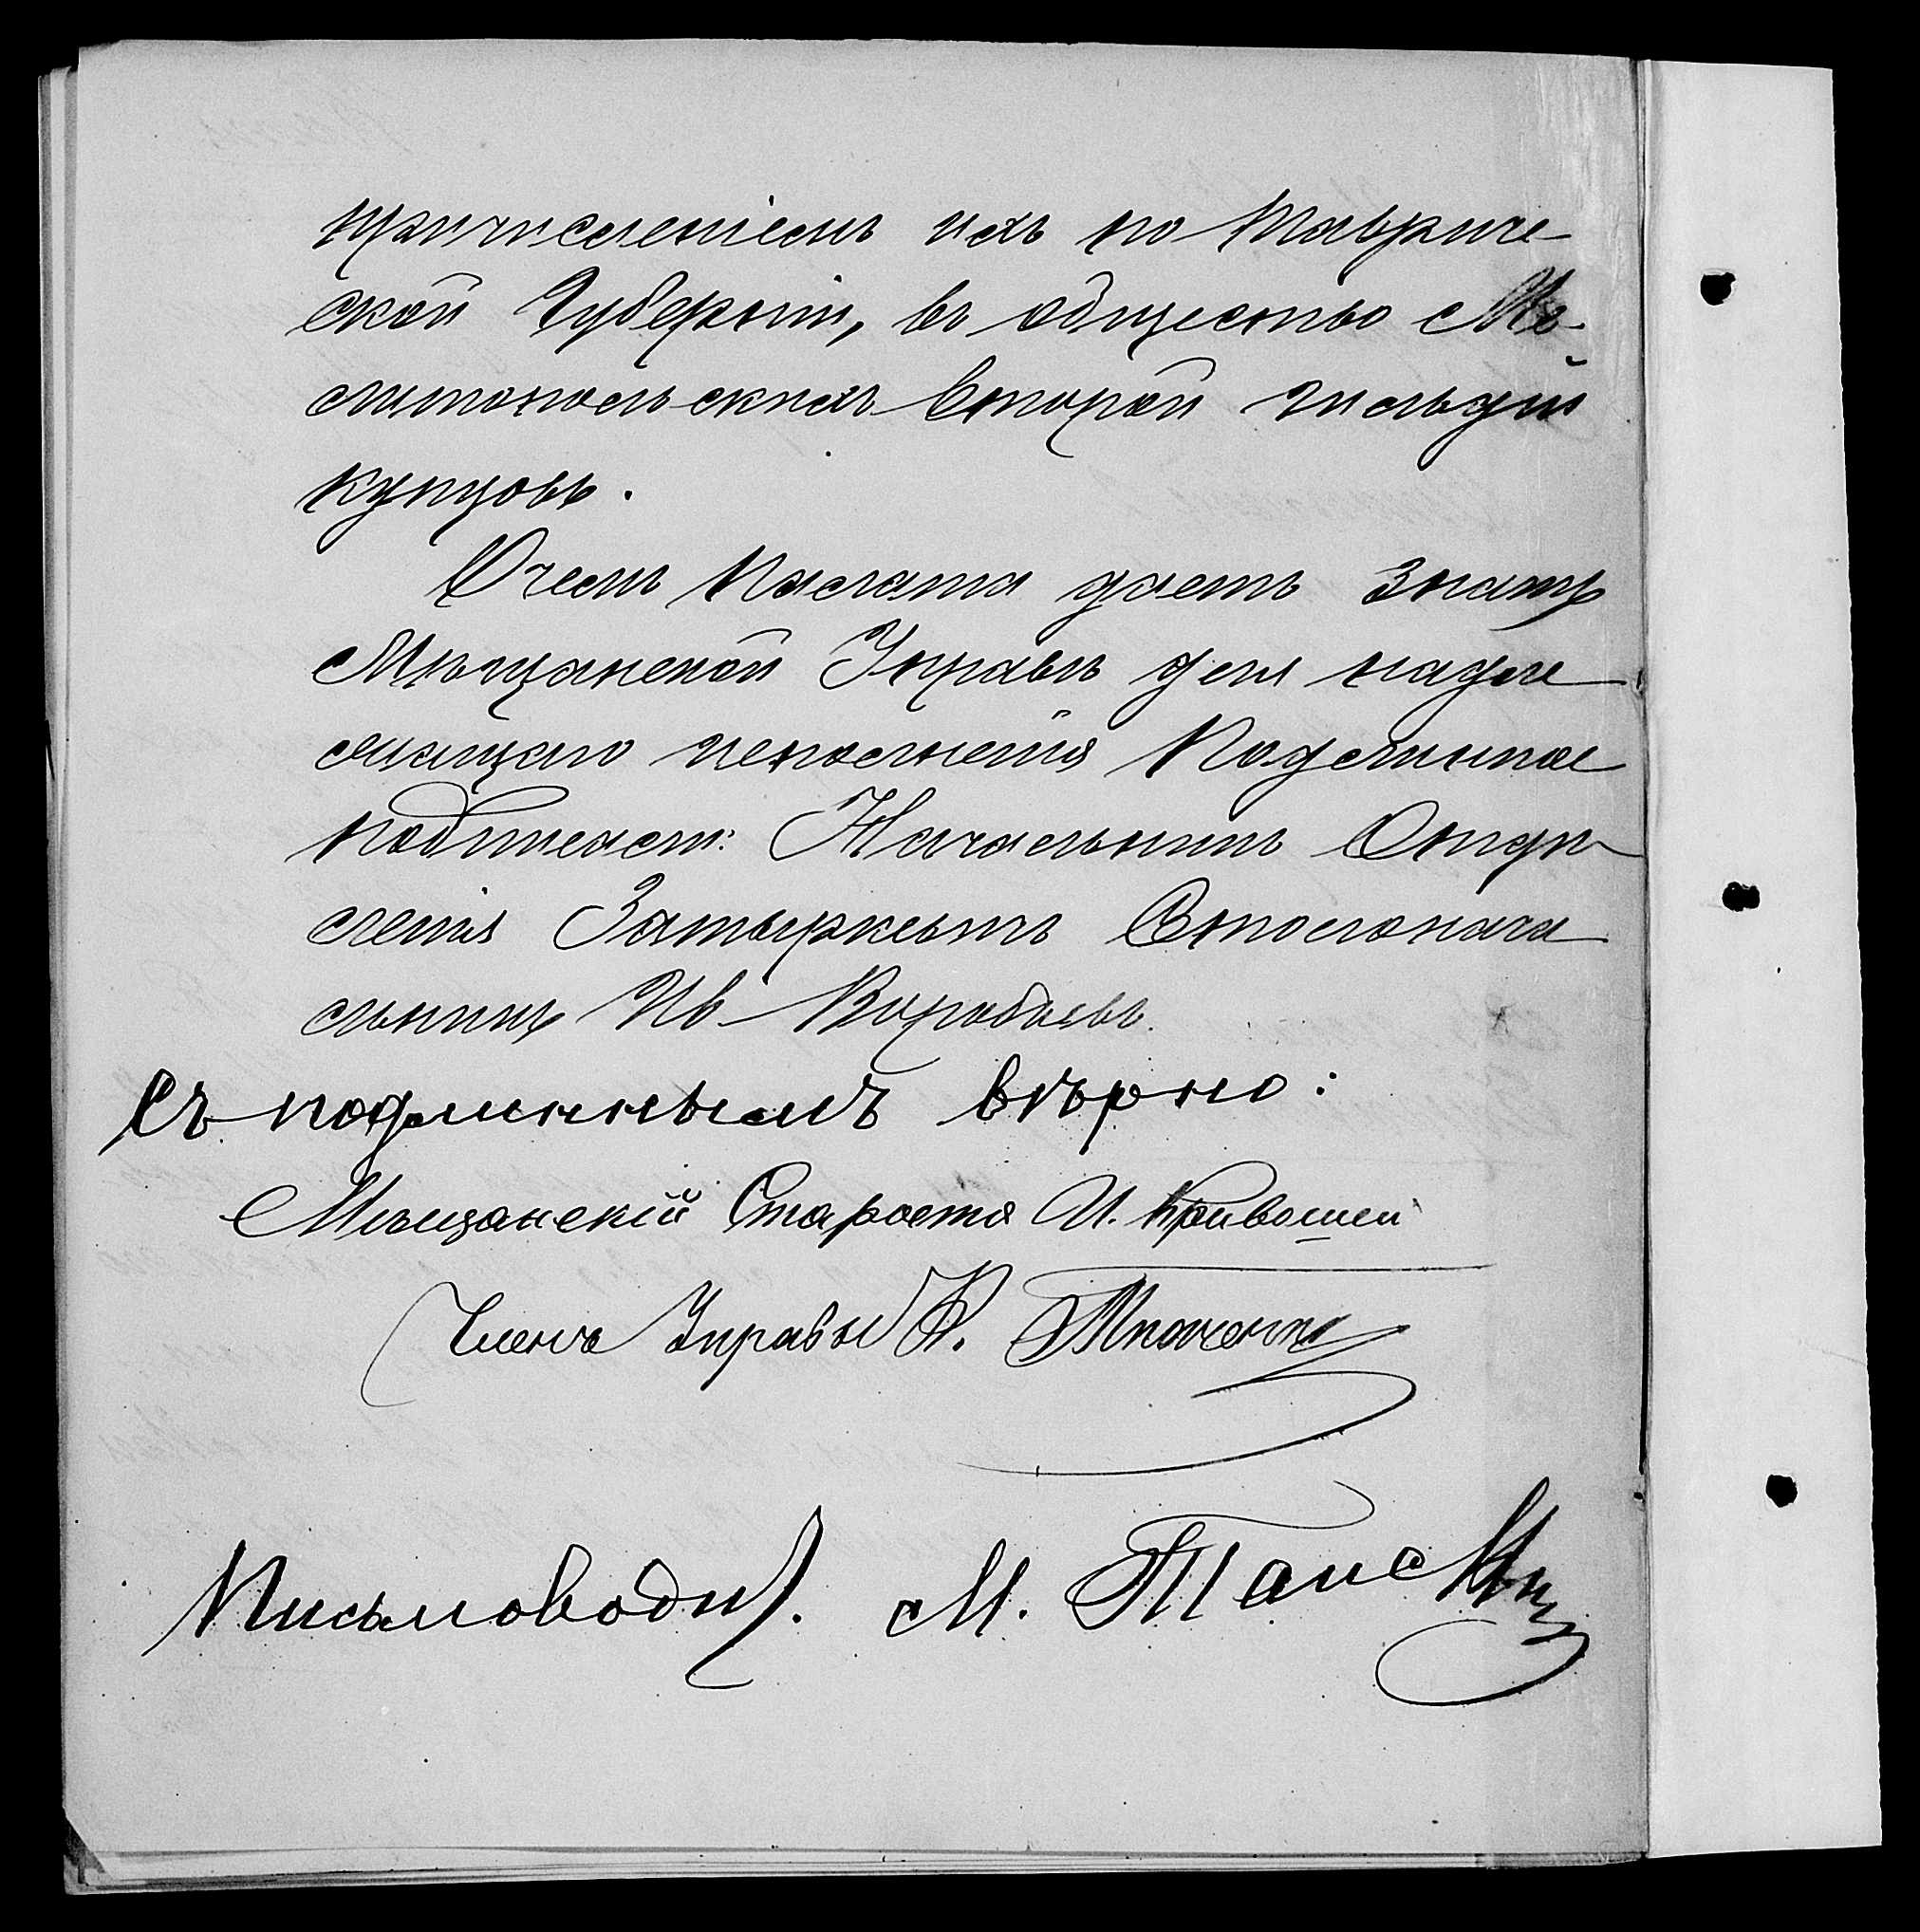 причисленіемъ ихъ по Тавриче-
ской Губерніи, въ общество Ме-
литопольскихъ второй гильдіи
купцовъ.
О чемъ Палата даетъ знать
Мѣщанской Управѣ для надле-
жащаго исполненія Подлинное
подписали: Начальникъ Отдѣ-
ленія Затыркевичъ Столонача
льникъ Ив Воробьевъ.
Съ подлиннымъ вѣрно:
Мѣщанскій Староста И. Кривошеи
Членъ Управы К.
Письмоводи). М.